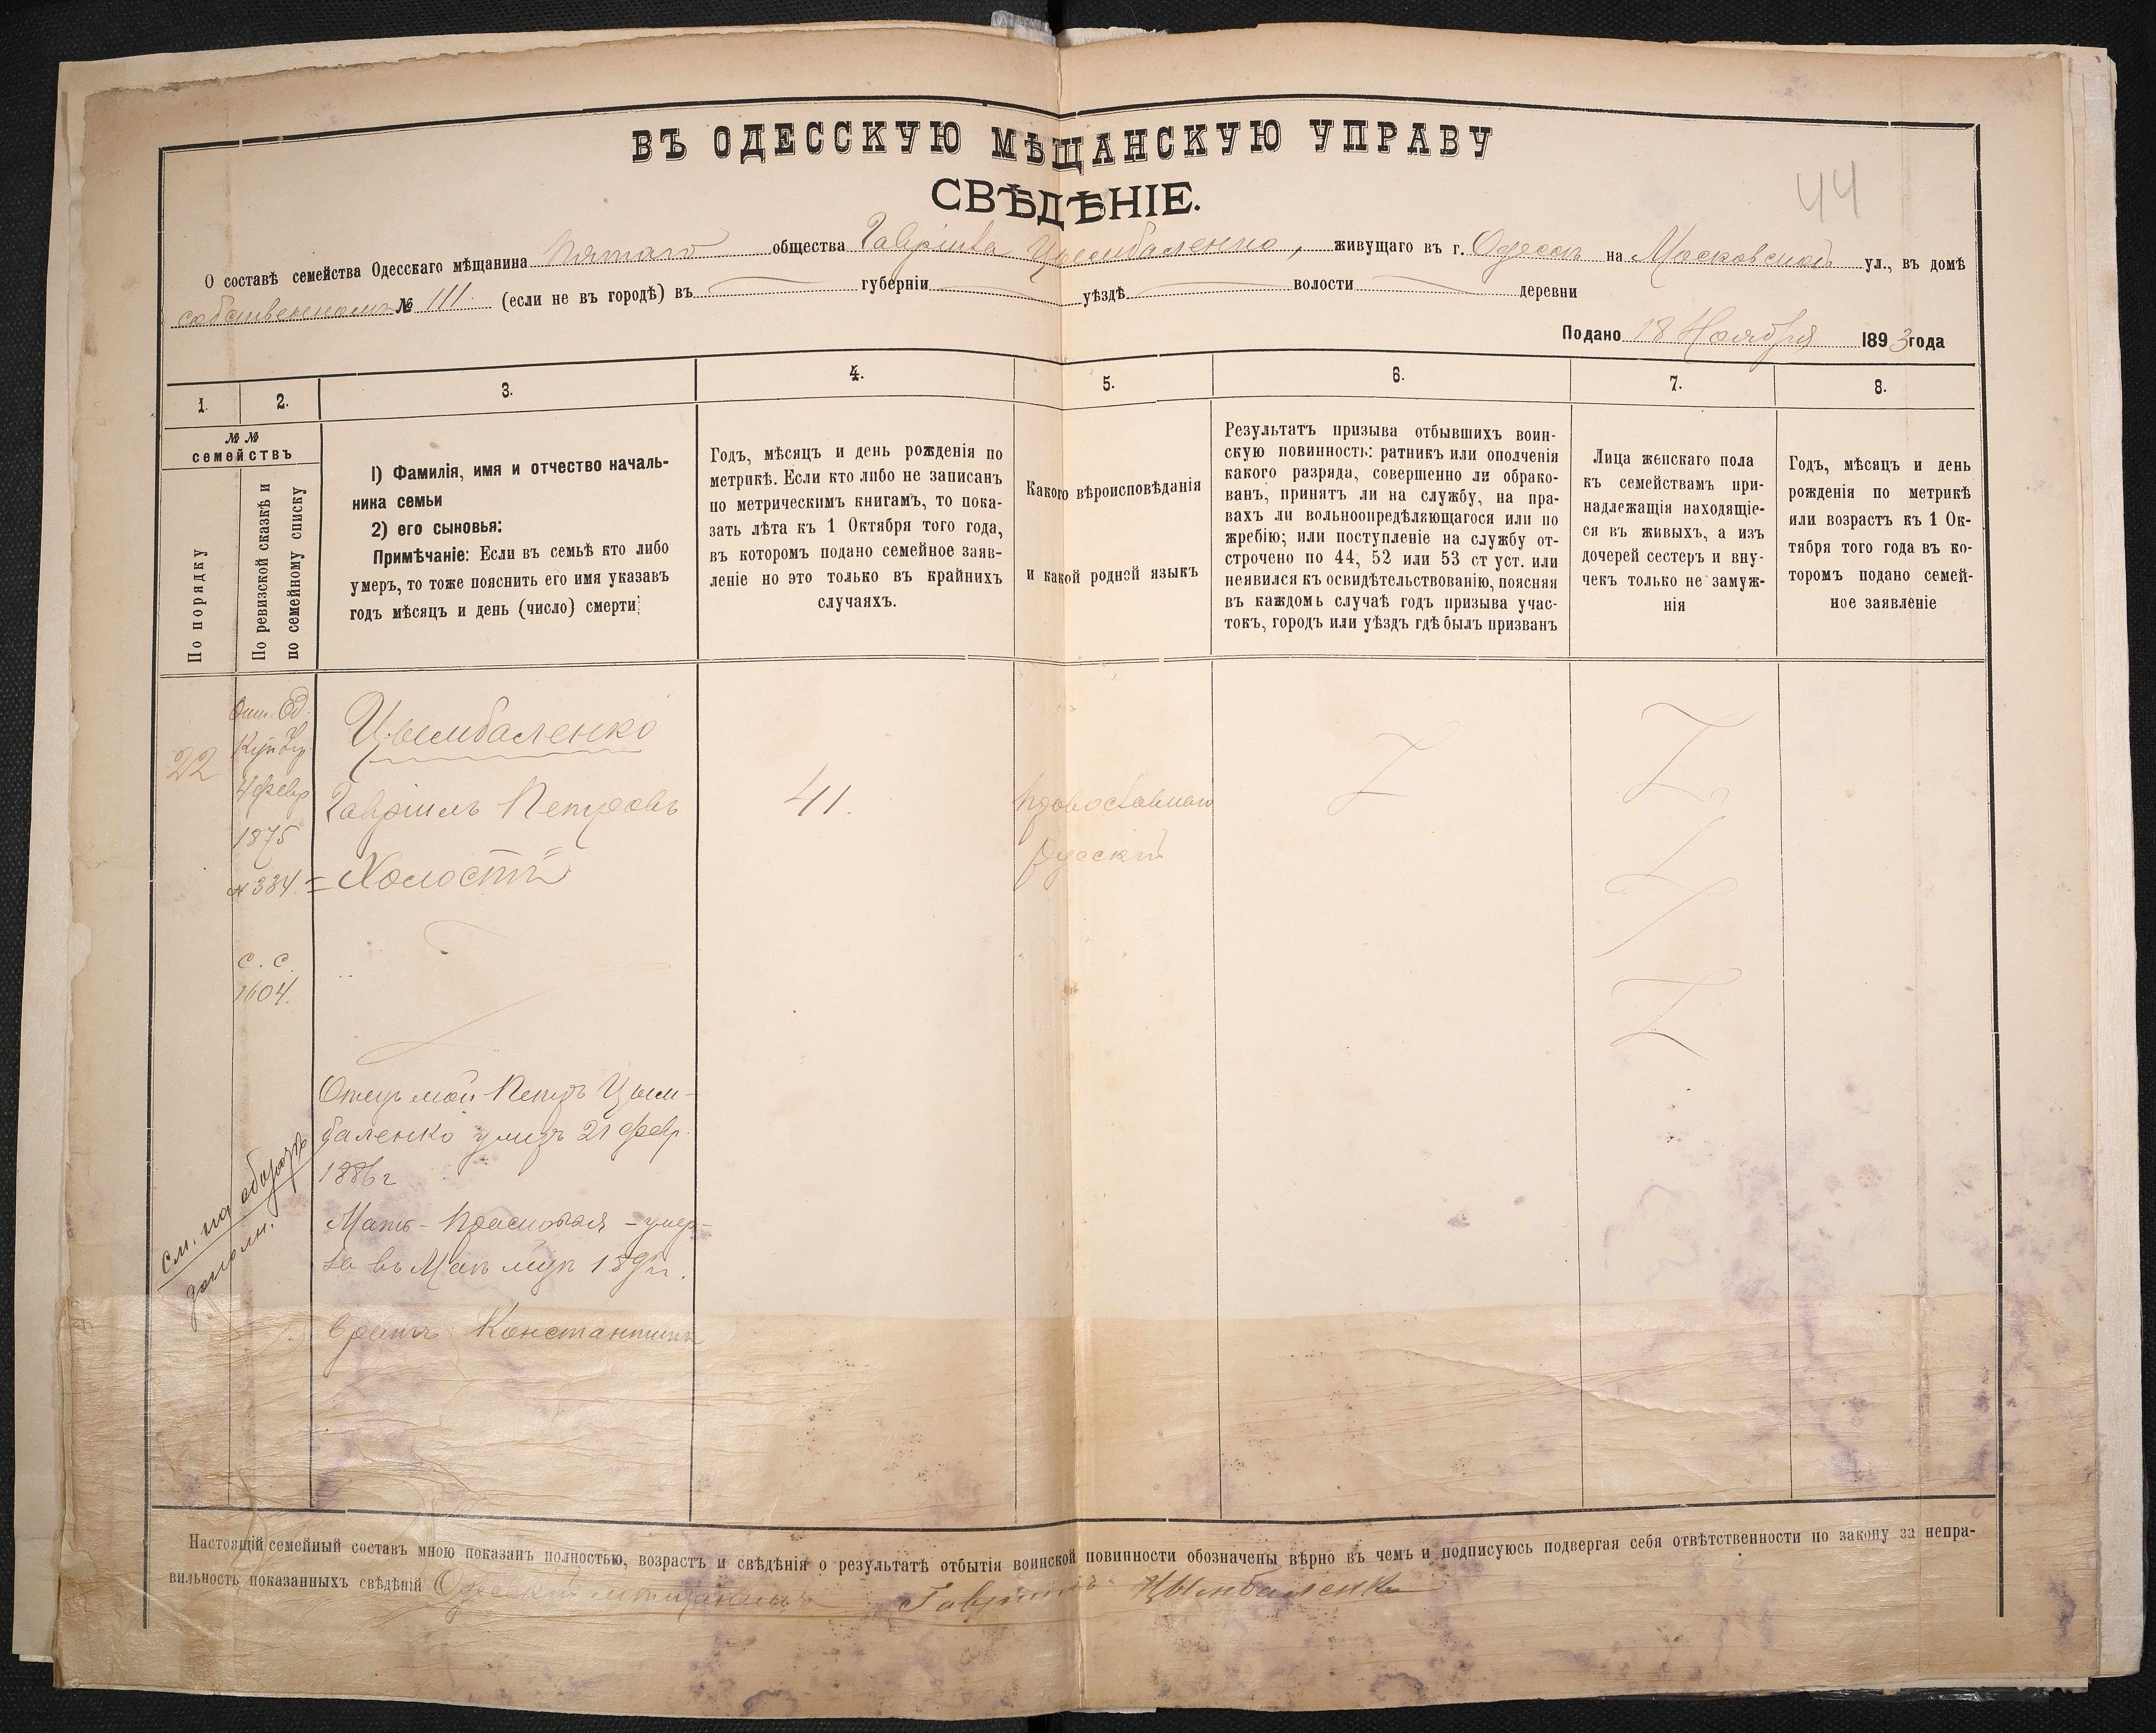 ВЪ ОДЕССКУЮ МѢЩАНСКУЮ УПРАВУ
СВѢДѢНІЕ.
44
О составѣ семейства Одесскаго мѣщанина Пятаго общества Гавріила Цымбаленко, живущаго въ г. Одессѣ на Московской ул., въ домѣ
собственномъ № 111 (если не въ городѣ) въ губерніи уѣздѣ волости деревни
Подано 18 Ноября 1893 года
1. 2. 3. 4. 5. 6. 7. 8.
№ №
семействъ
По порядку
По ревизской сказкѣ и
по семейному списку
1) Фамилія, имя и отчество началь-
ника семьи
2) его сыновья:
Примѣчаніе: Если въ семьѣ кто либо
умеръ, то тоже пояснить его имя указавъ
годъ мѣсяцъ и день (число) смерти
Годъ, мѣсяцъ и день рожденія по
метрикѣ. Если кто либо не записанъ
по метрическимъ книгамъ, то пока-
зать лѣта къ 1 Октября того года,
въ которомъ подано семейное заяв-
леніе но это только въ крайнихъ
случаяхъ.
Какого вѣроисповѣданія
и какой родной языкъ
Результатъ призыва отбывшихъ воин-
скую повинность: ратникъ или ополченія
какого разряда, совершенно ли обрако-
ванъ, принятъ ли на службу, на пра-
вахъ ли вольноопредѣляющагося или по
жребію; или поступленіе на службу от-
строчено по 44, 52 или 53 ст уст. или
неявился къ освидѣтельствованію, поясняя
въ каждомъ случаѣ годъ призыва учас-
токъ, городъ или уѣздъ гдѣ былъ призванъ
Лица женскаго пола
къ семействамъ при-
надлежащія находящіе-
ся въ живыхъ, а изъ
дочерей сестеръ и вну-
чекъ только не замуж-
нія
Годъ, мѣсяцъ и день
рожденія по метрикѣ
или возрастъ къ 1 Ок-
тября того года въ ко-
торомъ подано семей-
ное заявленіе
22
4 февр
1875
№ 334.
с. с.
1604.
Цымбаленко
Гавріилъ Петровъ
Холостой
41.
Православнаго
Русскій
Отецъ мой Петръ Цым-
баленко умеръ 21 февр.
1886 г
Мать - Прасковья - умер-
ла въ Маѣ мѣцѣ 189 г.
братъ Константинъ
см. на оборотѣ
дополн.
Настоящій семейный составъ мною показанъ полностью, возрастъ и свѣдѣнія о результатѣ отбытія воинской повинности обозначены вѣрно въ чемъ и подписуюсь подвергая себя отвѣтственности по закону за непра-
вильность показанныхъ свѣдѣній Одесскій мѣщанинъ Гавріилъ Цымбаленко